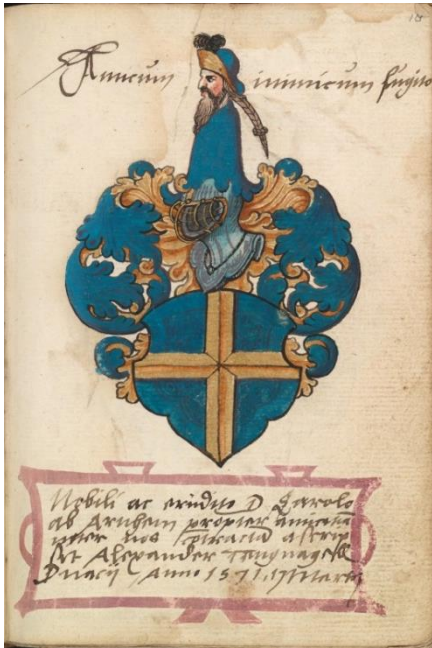 Amicum inimicum fugito
Nobili ac erudito D Carolo
ab Arnhem propter amicitiã
inter nos ascrip
sit Alexander Tangnagell
Duacij Anno 1571 17 Martij